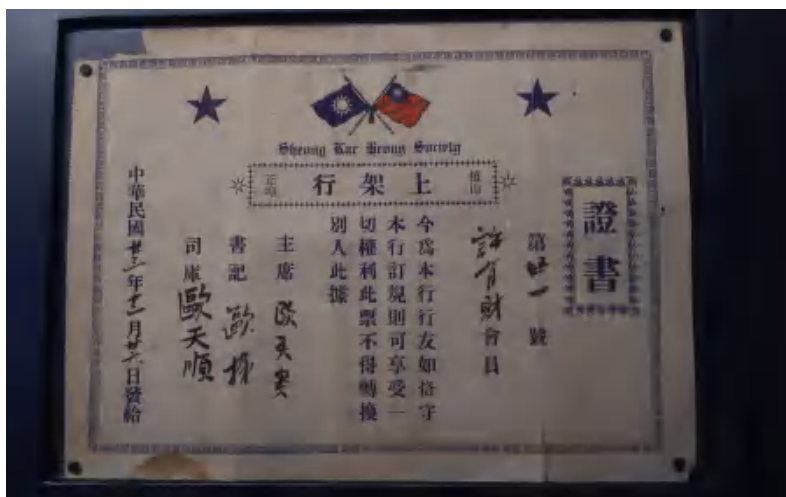 Sheong Kar Heong Society
上架行
證書
第 一 號
許有財會員
今爲本行行友如恪守
本行訂規則可享受一
切權利此票不得轉換
別人此據
主席
書記 歐
司庫 歐天順
中華民國廿三年 月廿六日發給